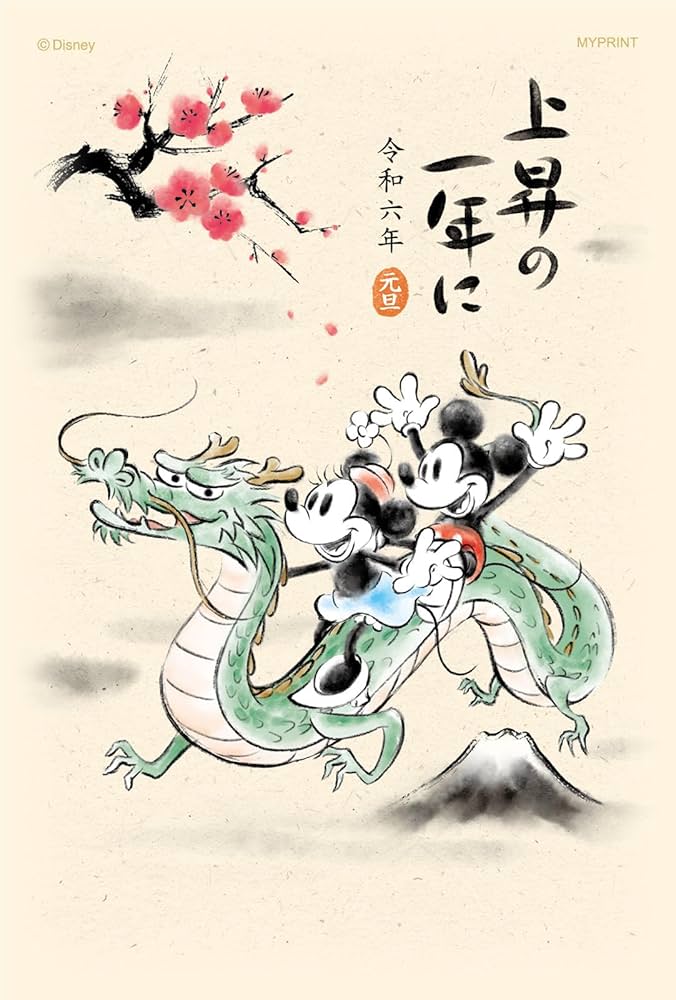 © Disney
MYPRINT
上昇の
一年に
令和六年
元旦